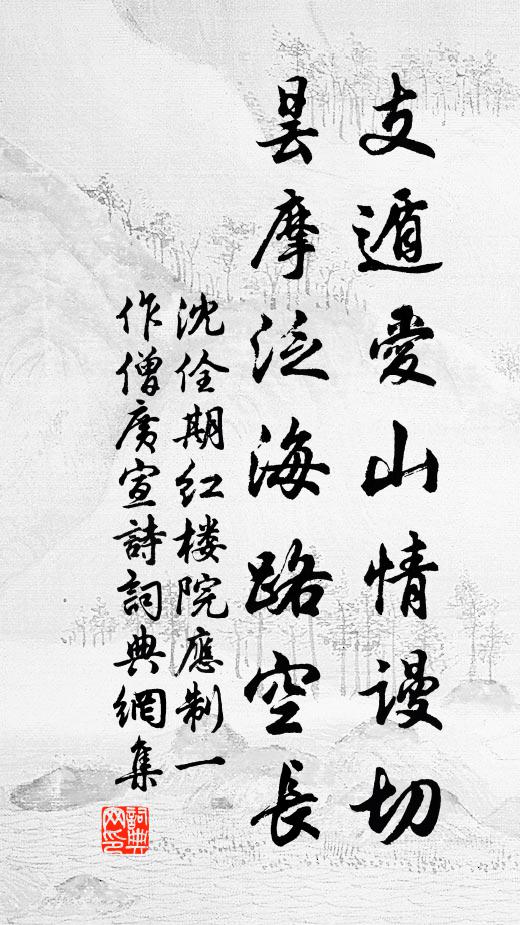 支遁愛山情謾切
曇摩泛海路空長
沈佺期红楼院應制一
作僧廣宣詩詞典網集
詞典
网印